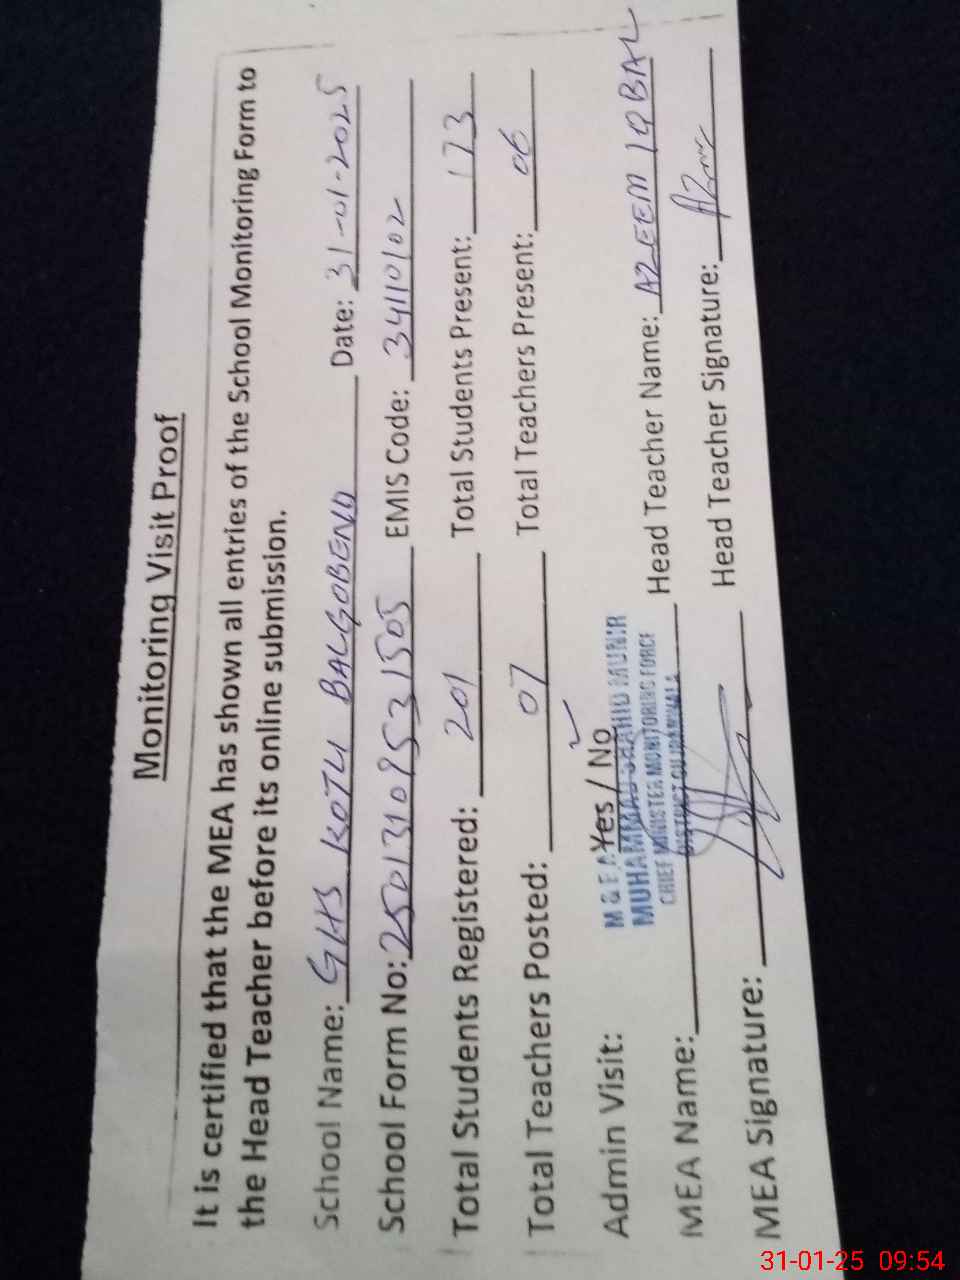 Monitoring Visit Proof
It is certified that the MEA has shown all entries of the School Monitoring Form to
the Head Teacher before its online submission.
School Name: GHS KOTLI BALGOBEND Date: 31-01-2025
School Form No: EMIS Code: 34110102
Total Students Registered: 201 Total Students Present: 173
Total Teachers Posted: 07 Total Teachers Present: 06
Admin Visit: Yes / No
M & E A
MUHAMMAD SHAHID MUNIR
CHIEF MINISTER MONITORING FORCE
DISTRICT GUJRANWALA
MEA Name: Head Teacher Name: AZEEM IQBAL
MEA Signature: Head Teacher Signature:
31-01-25 09:54